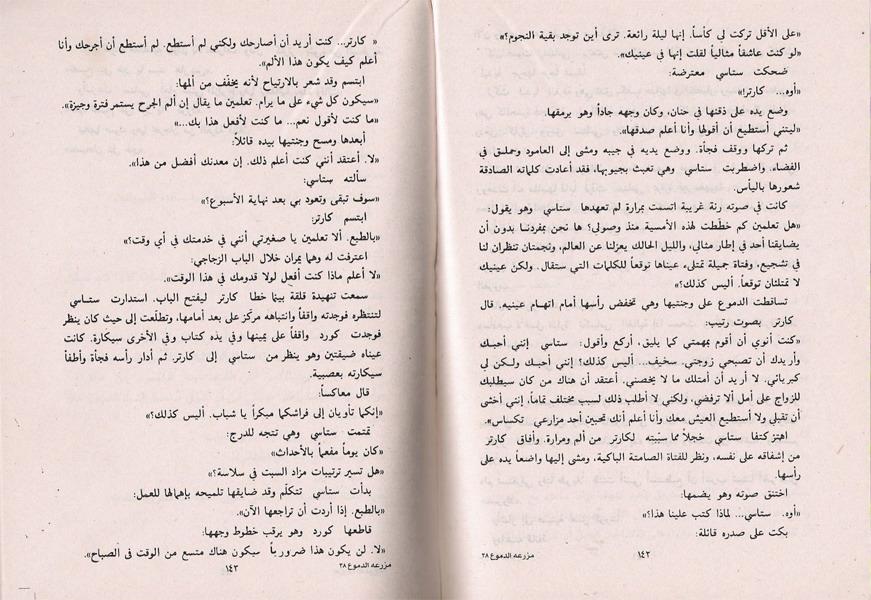 «على الأقل تركت لي كأساً. إنها ليلة رائعة. ترى أين توجد بقية النجوم؟»
«لو كنت عاشقاً مثالياً لقلت إنها في عينيك».
ضحكت ستاسي معترضة:
«أوه... كارتر!»
وضع يده على ذقنها في حنان، وكان وجهه جاداً وهو يرمقها.
«ليتني أستطيع أن أقولها وأنا أعلم صدقها».
ثم تركها ووقف فجأة. ووضع يديه في جيبه ومشى إلى العامود وحملق في
الفضاء. واضطربت ستاسي وهي تعبث بجيوبها، فقد أعادت كلماته الصادقة
شعورها باليأس.
كانت في صوته رنة غريبة اتسمت بمرارة لم تعهدها ستاسي وهو يقول:
«هل تعلمين كم خططت لهذه الأمسية منذ وصولي؟ ها نحن بمفردنا بدون أن
يضايقنا أحد في إطار مثالي، والليل الحالك يعزلنا عن العالم، ونجمتان تنظران لنا
في تشجيع، وفتاة جميلة تمتلىء عيناها توقعاً للكلمات التي ستقال. ولكن عينيك
لا تمتلئان توقعاً. أليس كذلك؟»
تساقطت الدموع على وجنتيها وهي تخفض رأسها أمام اتهام عينيه. قال
كارتر بصوت رتيب:
«كنت أنوي أن أقوم بمهمتي كما يليق، أركع وأقول: ستاسي إنني أحبك
وأريدك أن تصبحي زوجتي. سخيف... أليس كذلك؟ إنني أحبك ولكن لي
كبريائي. لا أريد أن أمتلك ما لا يخصني. أعتقد أن هناك من كان سيطلبك
للزواج على أمل ألا ترفضي، ولكنني لا أطلب ذلك لسبب مختلف تماماً، إنني أخشى
أن تقبلي ولا أستطيع العيش معك وأنا أعلم أنك تحبين أحد مزارعي تكساس».
اهتز كتفا ستاسي خجلاً مما سببته لكارتر من ألم ومرارة. وأفاق كارتر
من إشفاقه على نفسه، ونظر للفتاة الصامتة الباكية، ومشى إليها واضعاً يده على
رأسها.
اختنق صوته وهو يضمها:
«أوه. ستاسي... لماذا كتب علينا هذا؟»
بكت على صدره قائلة:
١٤٢
مزرعه الدموع ٢٨
« كارتر... كنت أريد أن أصارحك ولكني لم أستطع. لم أستطع أن أجرحك وأنا
أعلم كيف يكون هذا الألم».
ابتسم وقد شعر بالارتياح لأنه يخفف من ألمها:
«سيكون كل شيء على ما يرام. تعلمين ما يقال إن ألم الجرح يستمر فترة وجيزة».
«ما كنت لأقول نعم... ما كنت لأفعل هذا بك...»
أبعدها ومسح وجنتيها بيده قائلاً:
«لا. أعتقد أنني كنت أعلم ذلك. إن معدنك أفضل من هذا».
سألته ستاسي:
«سوف تبقى وتعود بي بعد نهاية الأسبوع؟»
ابتسم كارتر:
«بالطبع. ألا تعلمين يا صغيرتي أنني في خدمتك في أي وقت؟»
اعترفت له وهما يمران خلال الباب الزجاجي:
«لا أعلم ماذا كنت أفعل لولا قدومك في هذا الوقت».
سمعت تنهيدة قلقة بينما خطا كارتر ليفتح الباب. استدارت ستاسي
لتنتظره فوجدته واقفاً وانتباهه مركز على بعد أمامها، وتطلعت إلى حيث كان ينظر
فوجدت كورد واقفاً على يمينها وفي يده كتاب وفي الأخرى سيكارة. كانت
عيناه ضيقتين وهو ينظر من ستاسي إلى كارتر. ثم أدار رأسه فجأة وأطفأ
سيكارته بعصبية.
قال معاكساً:
«إنكما تأويان إلى فراشكما مبكراً يا شباب. أليس كذلك؟»
تمتمت ستاسي وهي تتجه للدرج:
«كان يوماً مفعماً بالأحداث»
«هل تسير ترتيبات مزاد السبت في سلاسة؟»
بدأت ستاسي تتكلم وقد ضايقها تلميحه بإهمالها للعمل:
«بالطبع. إذا أردت أن تراجعها الآن».
قاطعها كورد وهو يرقب خطوط وجهها:
«لا. لن يكون هذا ضرورياً سيكون هناك متسع من الوقت في الصباح».
١٤٣
مزرعه الدموع ٢٨